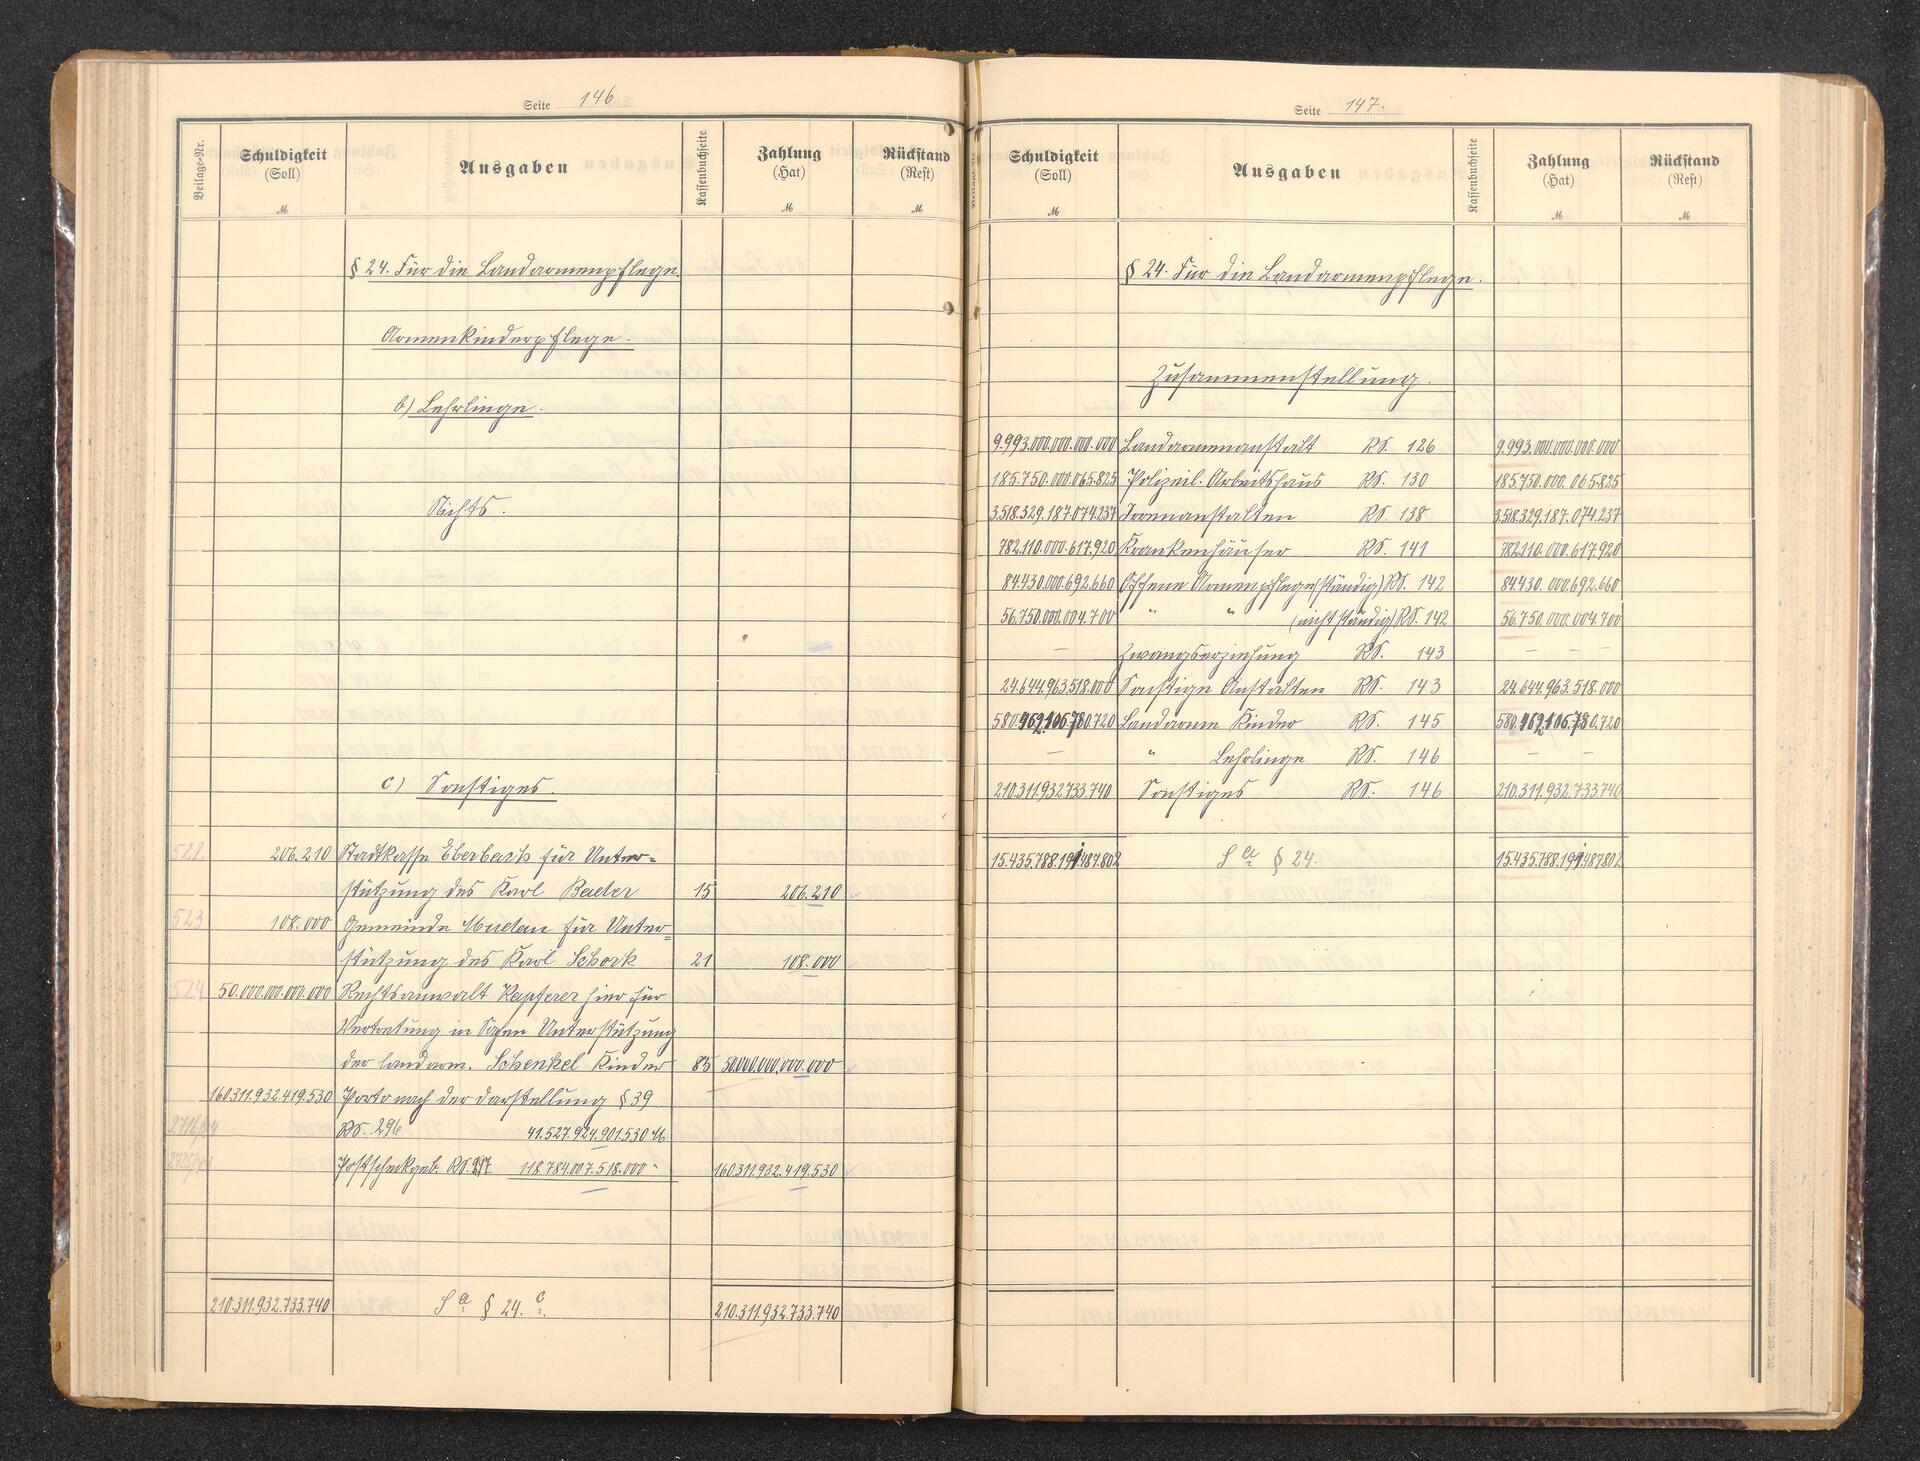 Seite 146
Beilage-Nr.
Schuldigkeit
(Soll)
M
Ausgaben
Kassenbuchseite
Zahlung
(Hat)
M
Rückstand
(Rest)
M
§ 24. Für die Landarmenpflege.
Armenkinderpflege.
b) Lehrlinge.
Nichts.
c) Sonstiges.
522 206.210 Stadtkasse Eberbach für Unter-
stützung des Karl Bader 15 206.210
523 108.000 Gemeinde Mudau für Unter-
stützung des Karl Schork 21 108.000
524 50.000.000.000.000 Rechtsanwalt Kapferer hier für
Vertretung in Sachen Unterstützung
der landarm. Schenkel Kinder 85 50.000.000.000.000
160.311.932.419.530 Porto nach der Darstellung § 39
2716/24 RS. 296 41.527.924.901.530 M
Postscheckgeb. RS. 118.784.007.518.000 " 160.311.932.419.530
210.311.932.733.740 Sa § 24. c. 210.311.932.733.740
Seite 147.
Schuldigkeit
(Soll)
M
Ausgaben
Kassenbuchseite
Zahlung
(Hat)
M
Rückstand
(Rest)
M
§ 24. Für die Landarmenpflege.
Zusammenstellung.
9.993.000.000.000.000 Landarmenanstalt RS. 126 9.993.000.000.000.000
185.750.000.065.825 Polizeil. Arbeitshaus RS. 130 185.750.000.065.825
3.518.329.187.074.237 Irrenanstalten RS. 138 3.518.329.187.074.237
782.110.000.617.920 Krankenhäuser RS. 141 782.110.000.617.920
84.430.000.692.660 Offene Armenpflege (ständig) RS. 142 84.430.000.692.660
56.750.000.004.700 " " (nicht ständig) RS. 142 56.750.000.004.700
— Zwangserziehung RS. 143 — — —
24.644.963.518.000 Sonstige Anstalten RS. 143 24.644.963.518.000
580.462.106.780.720 Landarme Kinder RS. 145 580.462.106.780.720
— " Lehrlinge RS. 146 — —
210.311.932.733.740 Sonstiges RS. 146 210.311.932.733.740
15.435.788.191.487.802 Sa § 24. 15.435.788.191.487.802